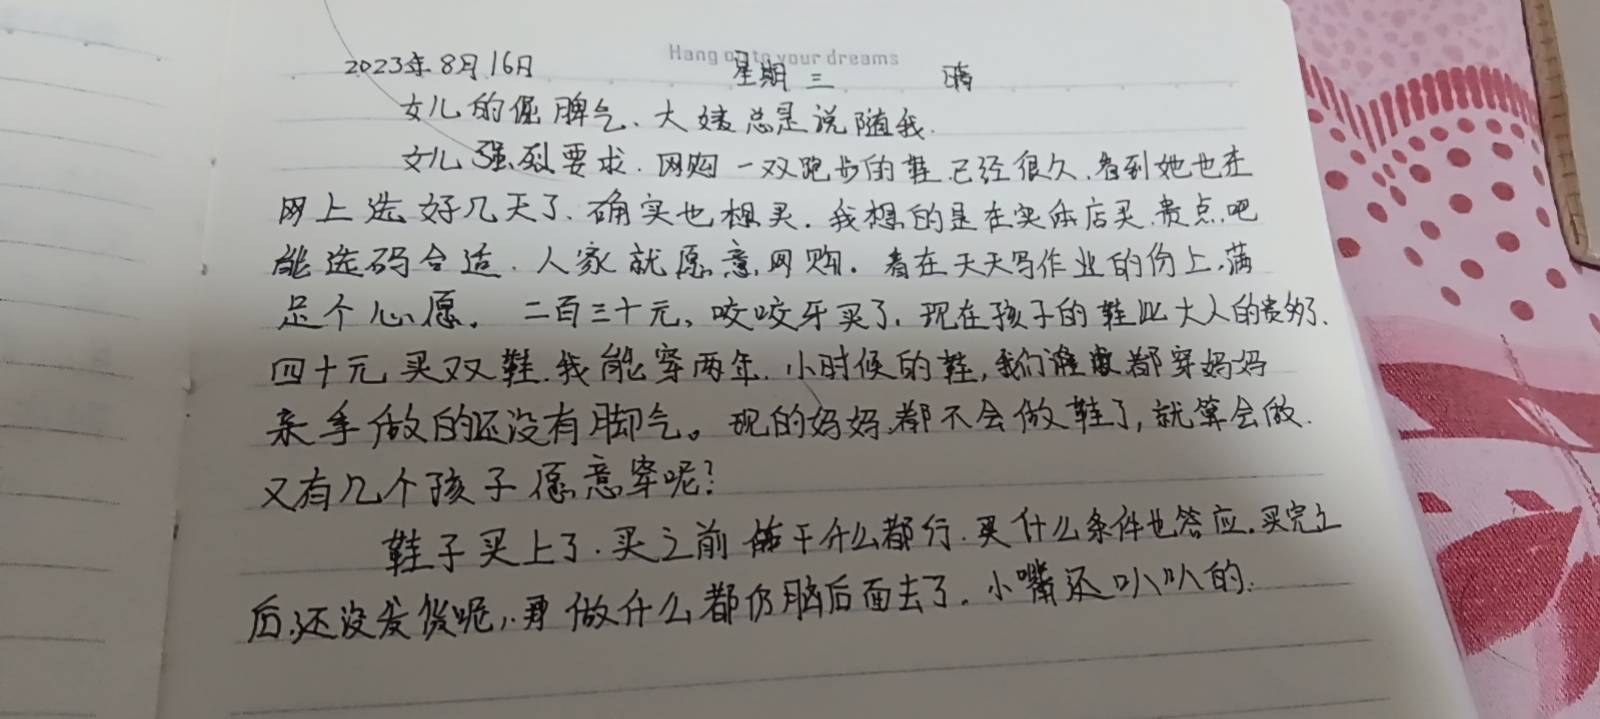 Hang on to your dreams
2023年8月16日 星期三 晴
女儿的倔脾气、大嫂总是说随我.
女儿强烈要求.网购一双跑步的鞋已经很久.看到她也在
网上选好几天了.确实也想买.我想的是在实体店买.贵点吧
能选码合适.人家就愿意网购.看在天天写作业的份上.满
足个心愿。二百三十元、咬咬牙买了.现在孩子的鞋比大人的贵多了.
四十元买双鞋.我能穿两年.小时候的鞋,我们谁都穿妈妈
亲手做的还没有脚气。现的妈妈.都不会做鞋了,就算会做.
又有几个孩子愿意穿呢?
鞋子买上了.买之前干什么都行.买什么条件也答应.买完之
后.还没发货呢,.再做什么都仍脑后面去了.小嘴还叭叭的.